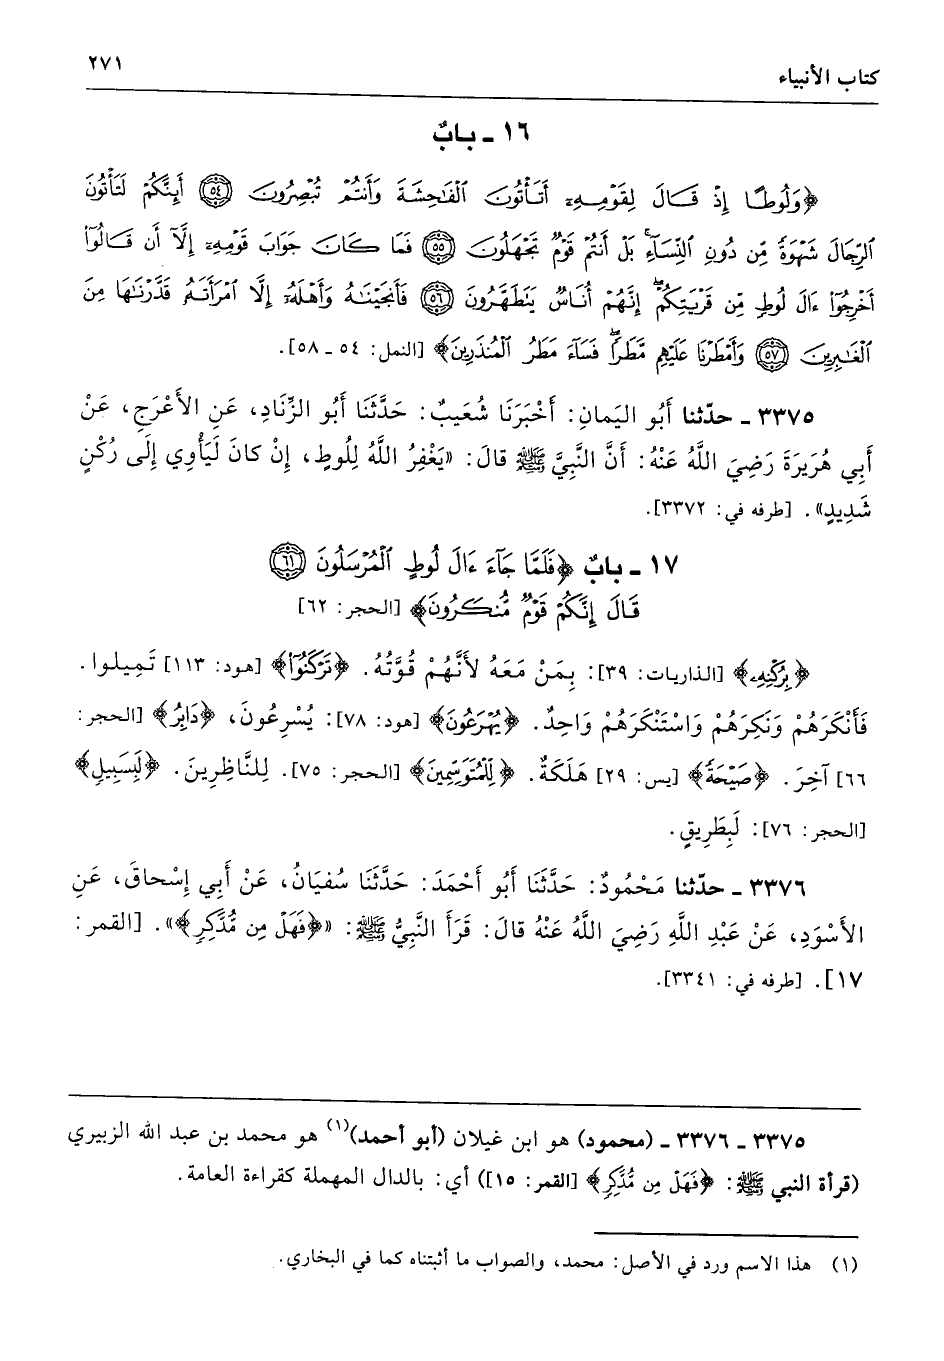 ٢٧١
كتاب الأنبياء
١٦ ـ بابٌ
﴿وَلُوطًا إِذْ قَالَ لِقَوْمِهِۦٓ أَتَأْتُونَ ٱلْفَٰحِشَةَ وَأَنتُمْ تُبْصِرُونَ ۝٥٤ أَئِنَّكُمْ لَتَأْتُونَ
ٱلرِّجَالَ شَهْوَةً مِّن دُونِ ٱلنِّسَآءِ ۚ بَلْ أَنتُمْ قَوْمٌ تَجْهَلُونَ ۝٥٥ فَمَا كَانَ جَوَابَ قَوْمِهِۦٓ إِلَّآ أَن قَالُوٓا۟
أَخْرِجُوٓا۟ ءَالَ لُوطٍ مِّن قَرْيَتِكُمْ ۖ إِنَّهُمْ أُنَاسٌ يَتَطَهَّرُونَ ۝٥٦ فَأَنجَيْنَٰهُ وَأَهْلَهُۥٓ إِلَّا ٱمْرَأَتَهُۥ قَدَّرْنَٰهَا مِنَ
ٱلْغَٰبِرِينَ ۝٥٧ وَأَمْطَرْنَا عَلَيْهِم مَّطَرًا ۖ فَسَآءَ مَطَرُ ٱلْمُنذَرِينَ﴾ [النمل: ٥٤ ـ ٥٨].
٣٣٧٥ ـ حدّثنا أَبُو اليَمانِ: أَخْبَرَنَا شُعَيبٌ: حَدَّثَنَا أَبُو الزِّنَادِ، عَنِ الأَعْرَجِ، عَنْ
أَبِي هُرَيرَةَ رَضِيَ اللَّهُ عَنْهُ: أَنَّ النَّبِيَّ ﷺ قالَ: «يَغْفِرُ اللَّهُ لِلُوطٍ، إِنْ كانَ لَيَأْوِي إِلَى رُكْنٍ
شَدِيدٍ». [طرفه في: ٣٣٧٢].
١٧ ـ بابٌ ﴿فَلَمَّا جَآءَ ءَالَ لُوطٍ ٱلْمُرْسَلُونَ ۝٦١
قَالَ إِنَّكُمْ قَوْمٌ مُّنكَرُونَ﴾ [الحجر: ٦٢]
﴿بِرُكْنِهِۦ﴾ [الذاريات: ٣٩]: بِمَنْ مَعَهُ لأَنَّهُمْ قُوَّتُهُ. ﴿تَرْكَنُوٓا۟﴾ [هود: ١١٣] تَمِيلوا.
فَأَنْكَرَهُمْ وَنَكِرَهُمْ وَاسْتَنْكَرَهُمْ وَاحِدٌ. ﴿يُهْرَعُونَ﴾ [هود: ٧٨]: يُسْرِعُونَ، ﴿دَابِرُ﴾ [الحجر:
٦٦] آخِرَ. ﴿صَيْحَةً﴾ [يس: ٢٩] هَلَكَةٌ. ﴿لِلْمُتَوَسِّمِينَ﴾ [الحجر: ٧٥]. لِلنَّاظِرِينَ. ﴿لَبِسَبِيلٍ﴾
[الحجر: ٧٦]: لَبِطَرِيقٍ.
٣٣٧٦ ـ حدّثنا مَحْمُودٌ: حَدَّثَنَا أَبُو أَحْمَدَ: حَدَّثَنَا سُفيَانُ، عَنْ أَبِي إِسْحاقَ، عَنِ
الأَسْوَدِ، عَنْ عَبْدِ اللَّهِ رَضِيَ اللَّهُ عَنْهُ قالَ: قَرَأَ النَّبِيُّ ﷺ: «﴿فَهَلْ مِن مُّدَّكِرٍ﴾». [القمر:
١٧]. [طرفه في: ٣٣٤١].
٣٣٧٥ ـ ٣٣٧٦ ـ (محمود) هو ابن غيلان (أبو أحمد)(١) هو محمد بن عبد الله الزبيري
(قرأة النبي ﷺ: ﴿فَهَلْ مِن مُّدَّكِرٍ﴾ [القمر: ١٥]) أي: بالدال المهملة كقراءة العامة.
(١) هذا الاسم ورد في الأصل: محمد، والصواب ما أثبتناه كما في البخاري.